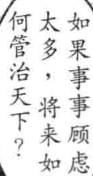 如果事事顾虑
太多，将来如
何管治天下？